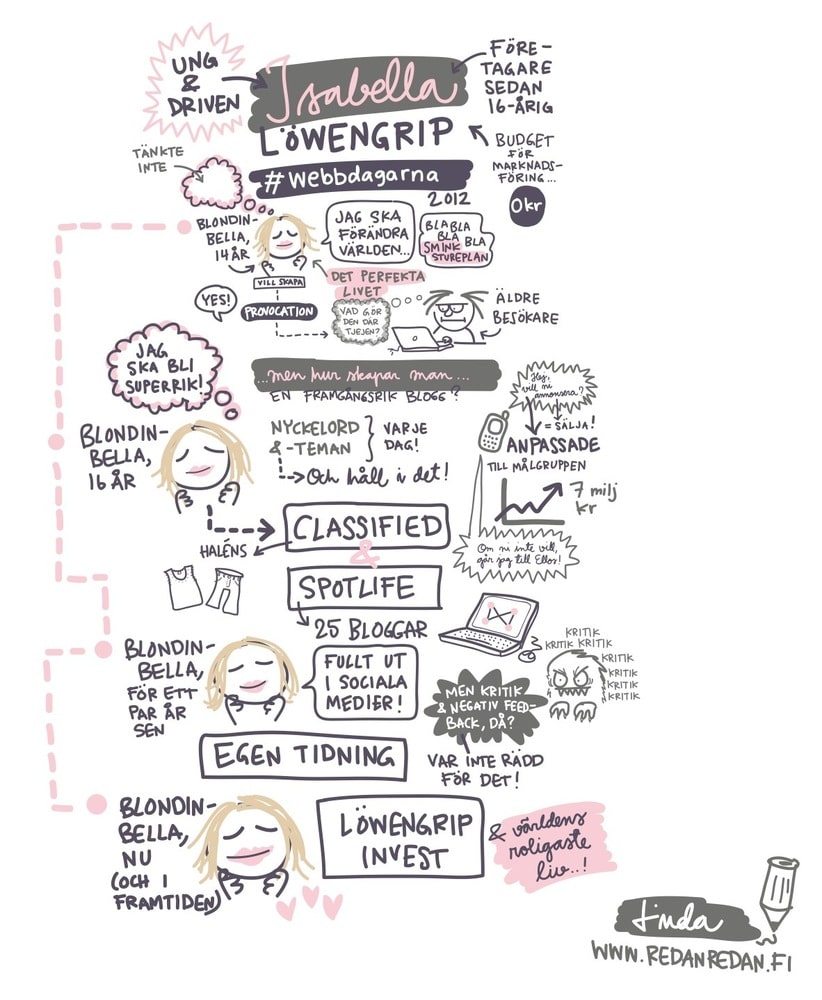 UNG
&
DRIVEN
Isabella
LÖWENGRIP
FÖRE-
TAGARE
SEDAN
16-ÅRIG
BUDGET
FÖR
MARKNADS-
FÖRING...
0 kr
#Webbdagarna
2012
TÄNKTE
INTE
BLONDIN-
BELLA,
14 ÅR
JAG SKA
FÖRÄNDRA
VÄRLDEN...
BLA BLA
BLA
BLA
SMINK
STUREPLAN
VILL SKAPA
DET PERFEKTA
LIVET
YES!
PROVOCATION
VAD GÖR
DEN DÄR
TJEJEN?
ÄLDRE
BESÖKARE
JAG
SKA BLI
SUPERRIK!
...men hur skapar man...
EN FRAMGÅNGSRIK BLOGG?
BLONDIN-
BELLA,
16 ÅR
NYCKELORD
& -TEMAN
VARJE
DAG!
Och håll i det!
Hej,
vill ni
annonsera?
= SÄLJA!
ANPASSADE
TILL MÅLGRUPPEN
7 milj
kr
Om ni inte vill,
går jag till Ellos!
CLASSIFIED
HALÉNS
&
SPOTLIFE
25 BLOGGAR
BLONDIN-
BELLA,
FÖR ETT
PAR ÅR
SEN
FULLT UT
I SOCIALA
MEDIER!
KRITIK
KRITIK KRITIK
KRITIK
KRITIK
KRITIK
KRITIK
MEN KRITIK
& NEGATIV FEED-
BACK, DÅ?
VAR INTE RÄDD
FÖR DET!
EGEN TIDNING
BLONDIN-
BELLA,
NU
(OCH I
FRAMTIDEN)
LÖWENGRIP
INVEST
& världens
roligaste
liv...!
Linda
WWW.REDANREDAN.FI